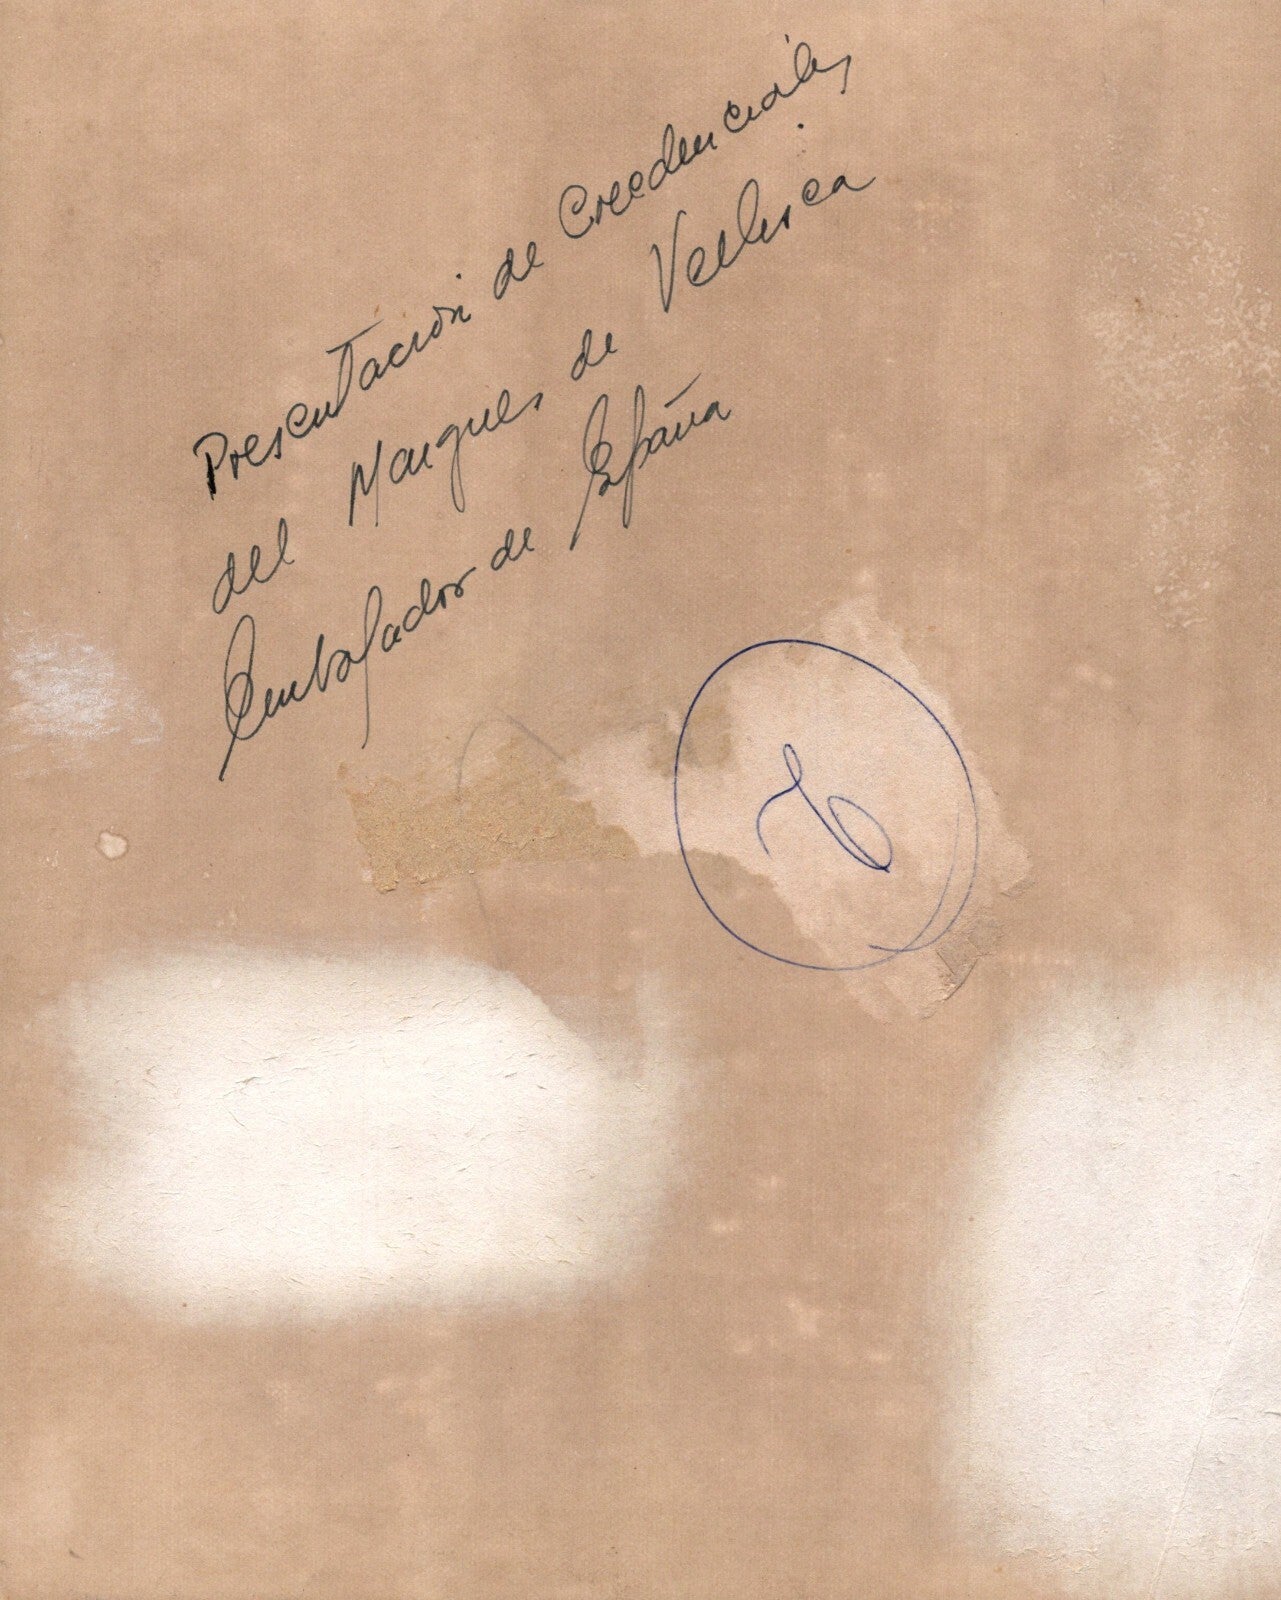 Presentación de Creedenciales
del Marques de Vellisca
Embajador de España